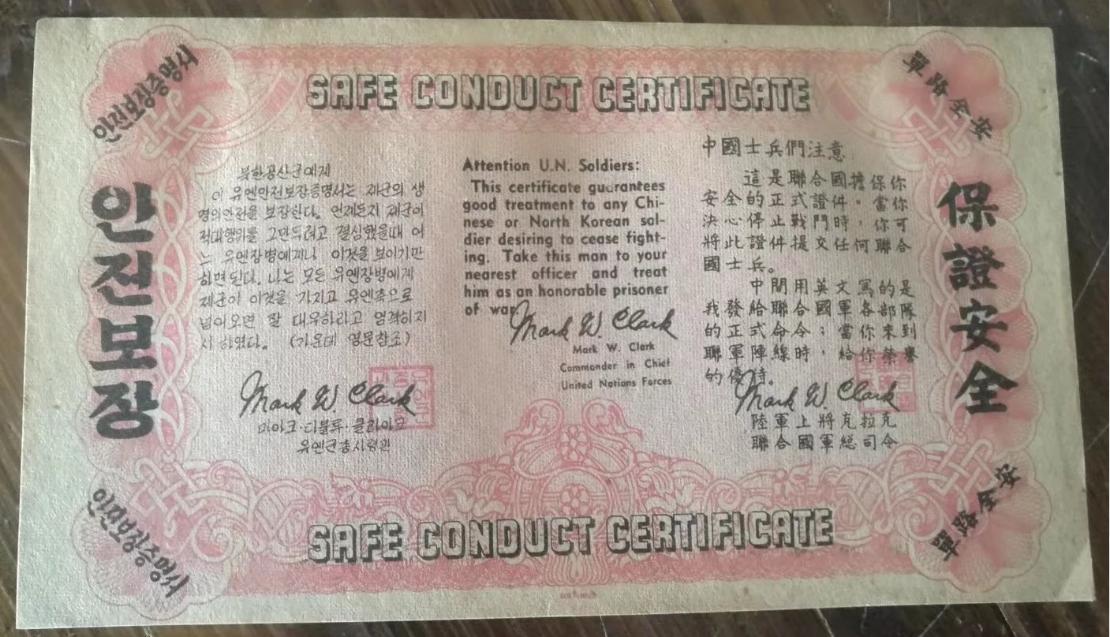 SAFE CONDUCT CERTIFICATE
안전보장증명서
單路全安
안전보장
북한공산군에게
이 유엔안전보장증명서는 제군의 생
명의안전을 보장한다. 언제든지 제군이
적대행위를 그만두려고 결심했을때 어
느 유엔장병에게나 이것을 보이기만
하면된다. 나는 모든 유엔장병에게
제군이 이것을 가지고 유엔측으로
넘어오면 잘 대우하라고 엄격히지
시 하였다. (가운데 영문참조)
Mark W. Clark
마아크·더블류·클라아크
유엔군총사령관
Attention U.N. Soldiers:
This certificate guarantees
good treatment to any Chi-
nese or North Korean sol-
dier desiring to cease fight-
ing. Take this man to your
nearest officer and treat
him as an honorable prisoner
of war.
Mark W. Clark
Mark W. Clark
Commander in Chief
United Nations Forces
中國士兵們注意
這是聯合國擔保你
安全的正式證件。當你
決心停止戰鬥時，你可
將此證件提交任何聯合
國士兵。
中間用英文寫的是
我發給聯合國軍各部隊
的正式命令；當你來到
聯軍陣線時，給你榮譽
的優待。
Mark W. Clark
陸軍上將克拉克
聯合國軍總司令
保證安全
안전보장증명서
單路全安
SAFE CONDUCT CERTIFICATE